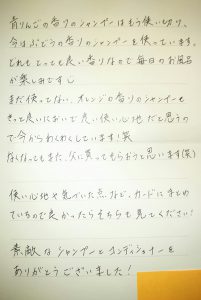 青りんごの香りのシャンプーはもう使い切り、
今はぶどうの香りのシャンプーを使っています。
どれもとっても良い香りなので毎日のお風呂
が楽しみです
まだ使ってない、オレンジの香りのシャンプーも
きっと良いにおいで良い使い心地だと思うの
で今からわくわくしています!笑
なくなってもまた、父に買ってもらおうと思います(笑)
使い心地や気づいた点など、カードにまとめ
ているので良かったらそちらも見てください!
素敵なシャンプーとコンディショナーを
ありがとうございました!